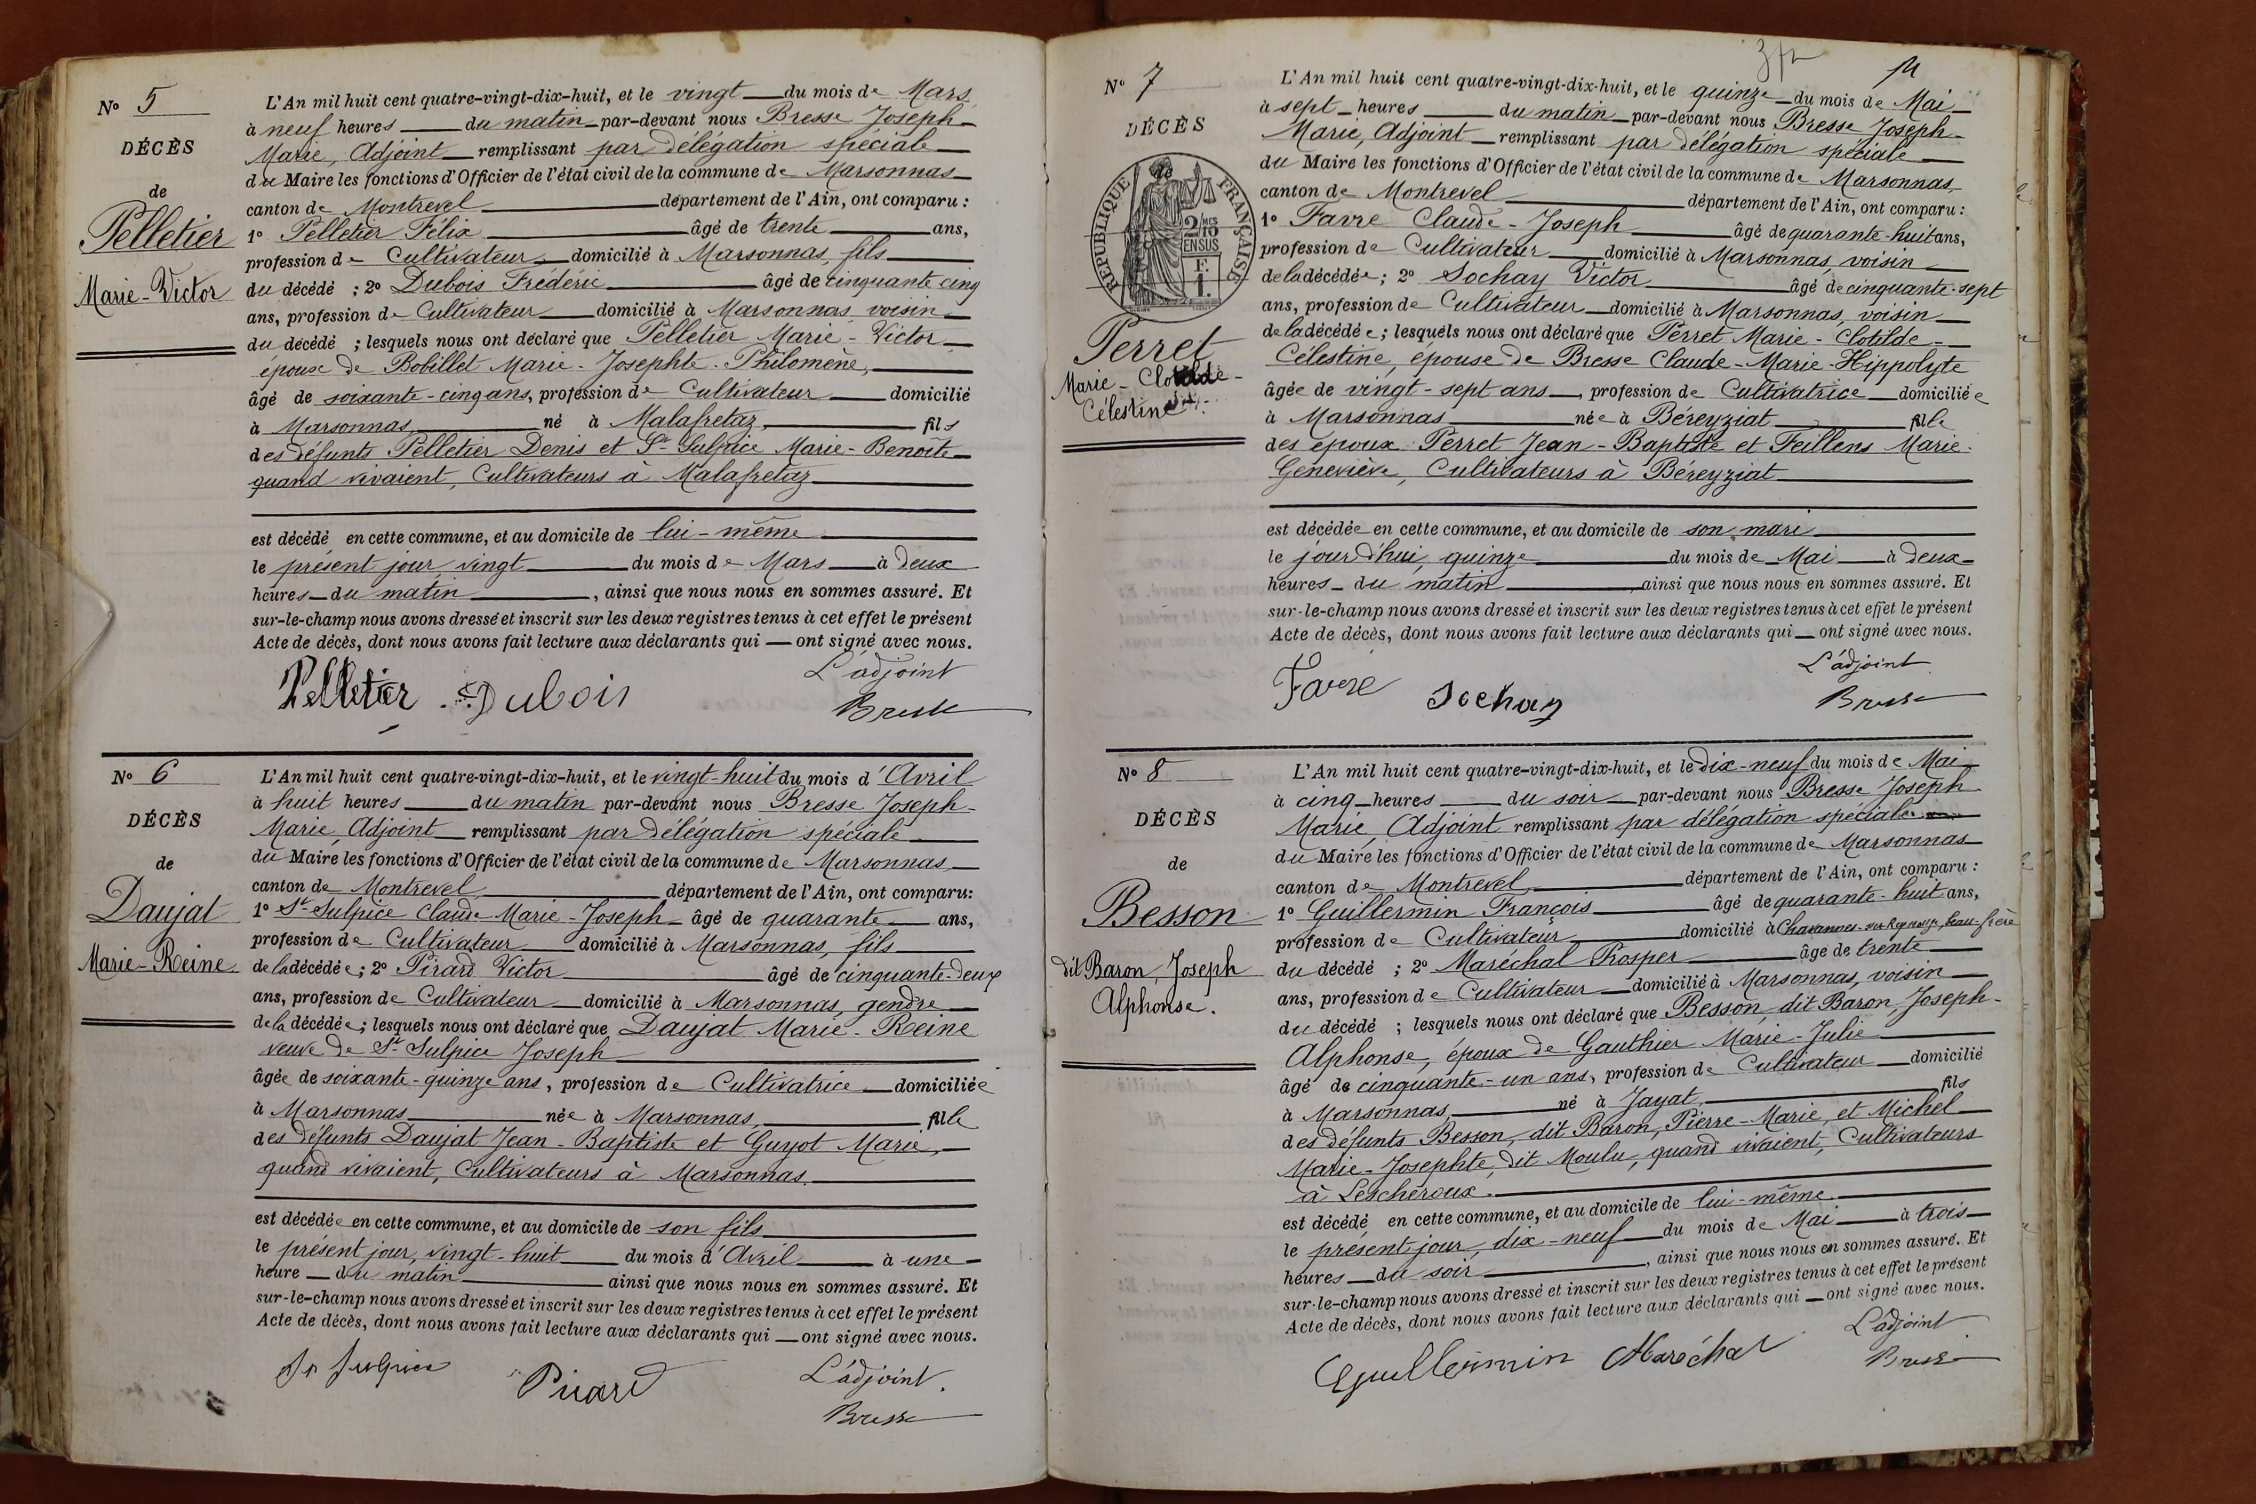 N° 5
DÉCÈS
de
Pelletier
Marie-Victor
L'An mil huit cent quatre-vingt-dix-huit, et le vingt du mois de Mars
à neuf heures du matin par-devant nous Bresse Joseph-
Marie, Adjoint remplissant par délégation spéciale
du Maire les fonctions d'Officier de l'état civil de la commune de Marsonnas
canton de Montrevel département de l'Ain, ont comparu :
1° Pelletier Félix âgé de trente ans,
profession de Cultivateur domicilié à Marsonnas, fils
du décédé ; 2° Dubois Frédéric âgé de cinquante cinq
ans, profession de Cultivateur domicilié à Marsonnas, voisin
du décédé ; lesquels nous ont déclaré que Pelletier Marie-Victor
épouse de Bobillet Marie-Josephte-Philomène,
âgé de soixante-cinq ans, profession de Cultivateur domicilié
à Marsonnas né à Malafretaz, fils
des défunts Pelletier Denis et St-Sulpice Marie-Benoîte
quand vivaient, Cultivateurs à Malafretaz
est décédé en cette commune, et au domicile de lui-même
le présent jour, vingt du mois de Mars à deux
heures du matin, ainsi que nous nous en sommes assuré. Et
sur-le-champ nous avons dressé et inscrit sur les deux registres tenus à cet effet le présent
Acte de décès, dont nous avons fait lecture aux déclarants qui — ont signé avec nous.
L'adjoint
Pelletier Dubois
Bresse
N° 6
DÉCÈS
de
Daujat
Marie-Reine
L'An mil huit cent quatre-vingt-dix-huit, et le vingt-huit du mois d'Avril
à huit heures du matin par-devant nous Bresse Joseph-
Marie, Adjoint remplissant par délégation spéciale
du Maire les fonctions d'Officier de l'état civil de la commune de Marsonnas
canton de Montrevel département de l'Ain, ont comparu:
1° St-Sulpice Claude-Marie-Joseph âgé de quarante ans,
profession de Cultivateur domicilié à Marsonnas, fils
de la décédée; 2° Pirard Victor âgé de cinquante-deux
ans, profession de Cultivateur domicilié à Marsonnas, gendre
de la décédée; lesquels nous ont déclaré que Daujat Marie-Reine
veuve de St-Sulpice Joseph
âgée de soixante-quinze ans, profession de Cultivatrice domiciliée
à Marsonnas née à Marsonnas, fille
des défunts Daujat Jean-Baptiste et Guyot Marie,
quand vivaient, Cultivateurs à Marsonnas.
est décédée en cette commune, et au domicile de son fils
le présent jour, vingt-huit du mois d'Avril à une
heure du matin ainsi que nous nous en sommes assuré. Et
sur-le-champ nous avons dressé et inscrit sur les deux registres tenus à cet effet le présent
Acte de décès, dont nous avons fait lecture aux déclarants qui — ont signé avec nous.
St Sulpice Pirard L'adjoint.
Bresse
N° 7
DÉCÈS
RÉPUBLIQUE FRANÇAISE
2/10 MES
EN SUS
F.
1.
Perret
Marie-Clotilde-
Célestine
L'An mil huit cent quatre-vingt-dix-huit, et le quinze du mois de Mai
à sept heures du matin par-devant nous Bresse Joseph-
Marie, Adjoint remplissant par délégation spéciale
du Maire les fonctions d'Officier de l'état civil de la commune de Marsonnas,
canton de Montrevel département de l'Ain, ont comparu :
1° Favre Claude-Joseph âgé de quarante-huit ans,
profession de Cultivateur domicilié à Marsonnas, voisin
de la décédée ; 2° Sochay Victor âgé de cinquante-sept
ans, profession de Cultivateur domicilié à Marsonnas, voisin
de la décédée ; lesquels nous ont déclaré que Perret Marie-Clotilde-
Célestine, épouse de Bresse Claude-Marie-Hippolyte
âgée de vingt-sept ans, profession de Cultivatrice domiciliée
à Marsonnas née à Béreyziat fille
des époux Perret Jean-Baptiste et Feillens Marie-
Geneviève, Cultivateurs à Béreyziat
est décédée en cette commune, et au domicile de son mari
le jourd'hui, quinze du mois de Mai à deux
heures du matin, ainsi que nous nous en sommes assuré. Et
sur-le-champ nous avons dressé et inscrit sur les deux registres tenus à cet effet le présent
Acte de décès, dont nous avons fait lecture aux déclarants qui — ont signé avec nous.
L'adjoint
Favre Sochay Bresse
N° 8
DÉCÈS
de
Besson
dit Baron, Joseph
Alphonse.
L'An mil huit cent quatre-vingt-dix-huit, et le dix-neuf du mois de Mai
à cinq heures du soir par-devant nous Bresse Joseph
Marie, Adjoint remplissant par délégation spéciale
du Maire les fonctions d'Officier de l'état civil de la commune de Marsonnas
canton de Montrevel département de l'Ain, ont comparu :
1° Guillermin François âgé de quarante-huit ans,
profession de Cultivateur domicilié à Chavannes-sur-Reyssouze, beau-frère
du décédé ; 2° Maréchal Prosper âgé de trente
ans, profession de Cultivateur domicilié à Marsonnas, voisin
du décédé ; lesquels nous ont déclaré que Besson, dit Baron, Joseph-
Alphonse, époux de Gauthier Marie-Julie
âgé de cinquante-un ans, profession de Cultivateur domicilié
à Marsonnas, né à Jayat, fils
des défunts Besson, dit Baron, Pierre-Marie, et Michel
Marie-Josephte, dit Moulu, quand vivaient, Cultivateurs
à Lescheroux.
est décédé en cette commune, et au domicile de lui-même.
le présent jour, dix-neuf du mois de Mai à trois
heures du soir, ainsi que nous nous en sommes assuré. Et
sur-le-champ nous avons dressé et inscrit sur les deux registres tenus à cet effet le présent
Acte de décès, dont nous avons fait lecture aux déclarants qui — ont signé avec nous.
L'adjoint
Guillermin Maréchal Bresse